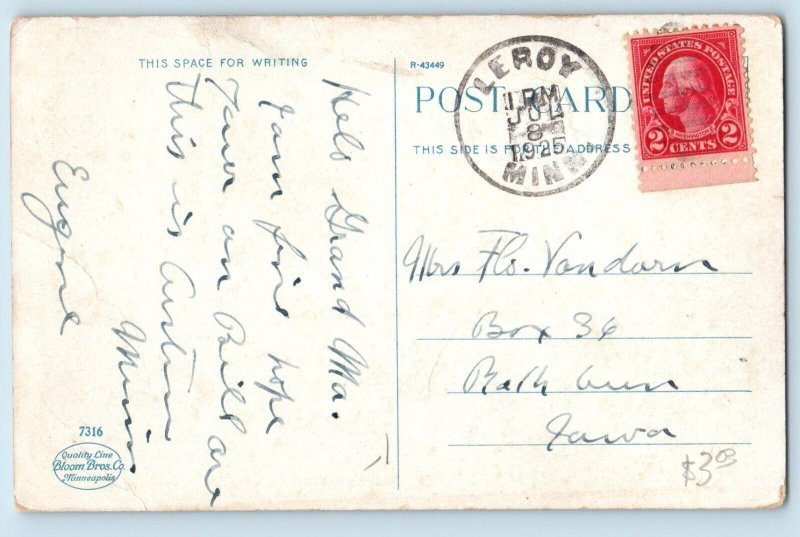 THIS SPACE FOR WRITING
Helo Grand Ma.
I am fine hope
you an Bill are
This is Austin
Minn
Eugene
7316
Quality Line
Bloom Bros. Co.
Minneapolis
R-43449
POST CARD
THIS SIDE IS FOR THE ADDRESS
LEROY
1 PM
JUL
8
1925
MINN
UNITED STATES POSTAGE
WASHINGTON
2 CENTS 2
Mrs Flo. Vandorn
Box 36
Rathbun
Iowa
$3.00